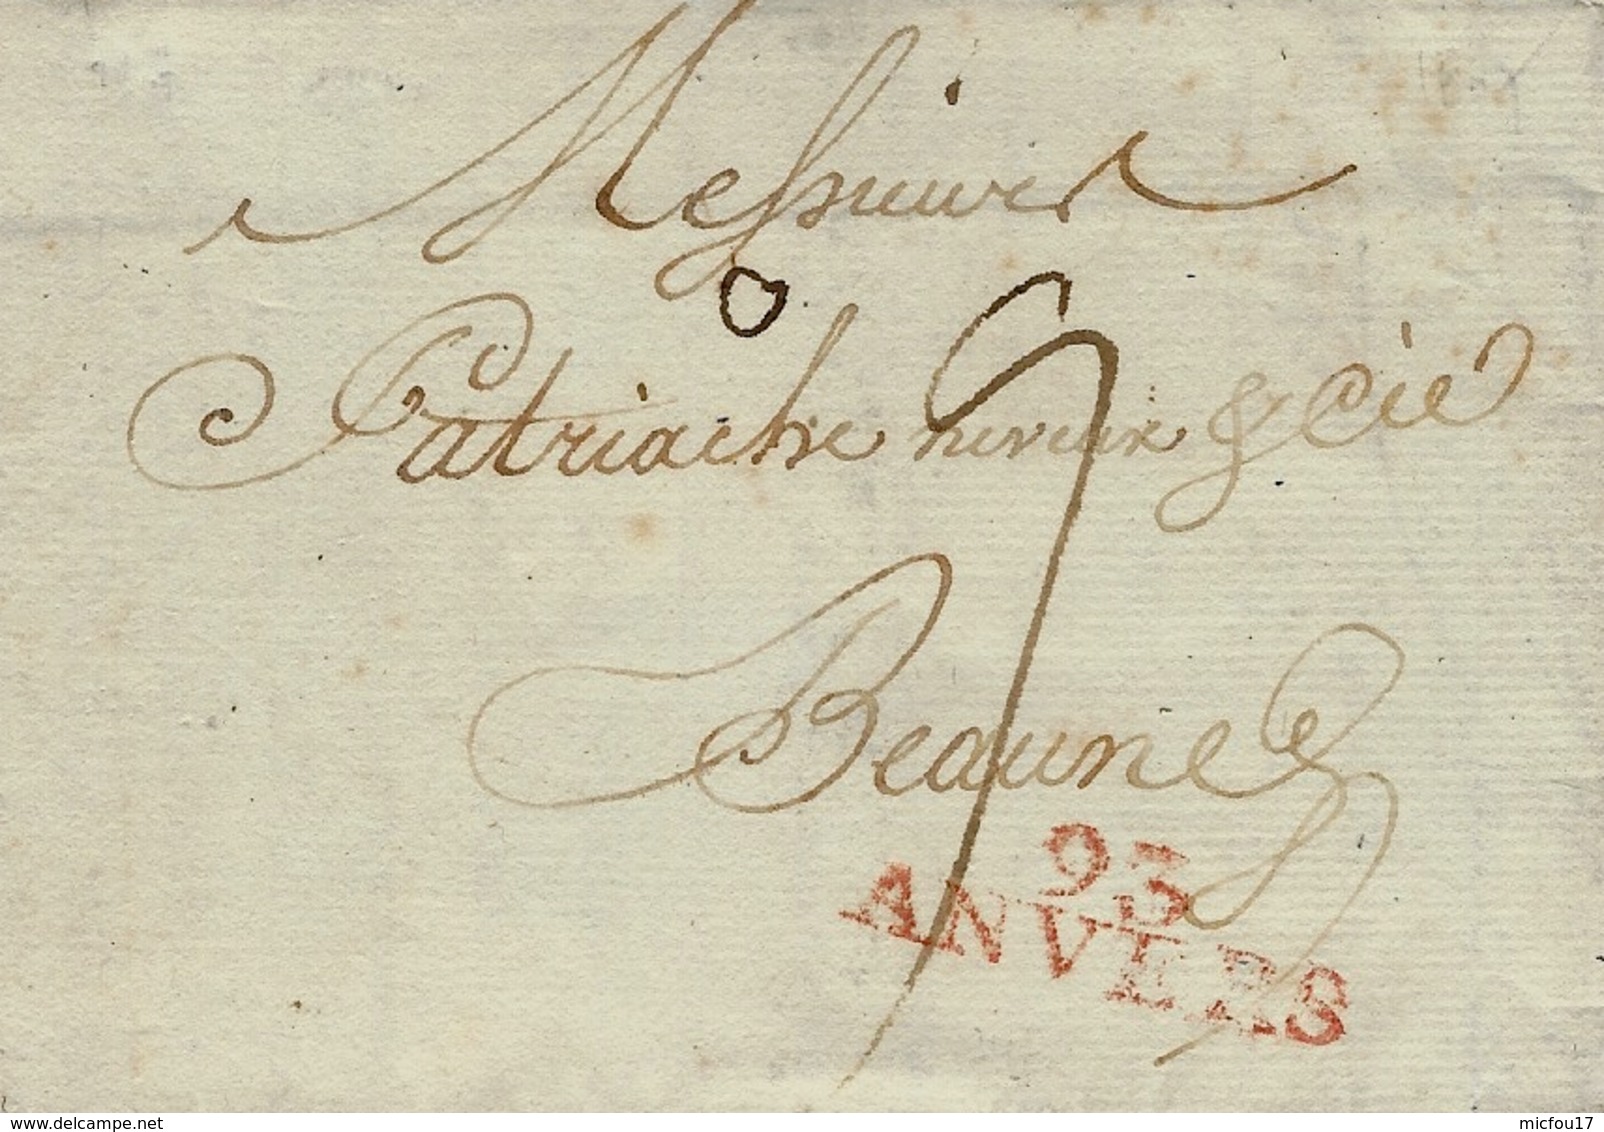 Messieurs
Patriache neveux & Cie
Beaune
93
ANVERS
www.delcampe.net
micfou17